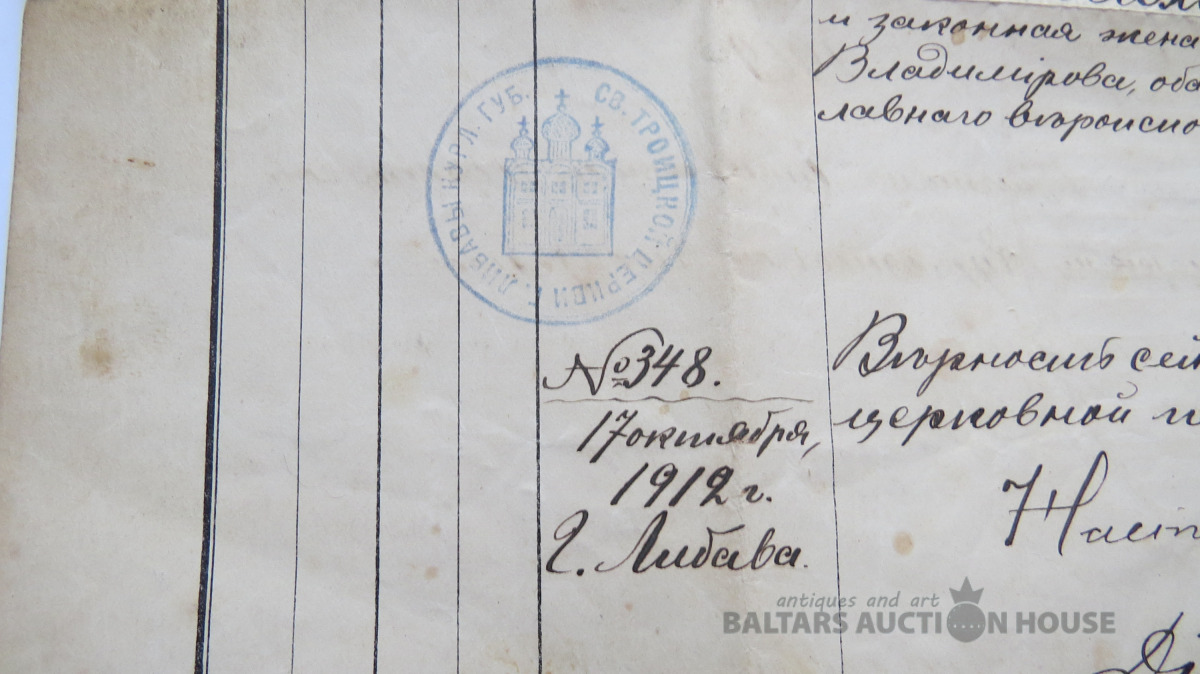 и законная жена
Владимірова, оба
лавнаго вѣроиспо
СВ. ТРОИЦКОЙ ЦЕРКВИ Г. ЛИБАВЫ КУРЛ. ГУБ.
№348.
17 октября,
1912 г.
Г. Либава.
Вѣрность сей
церковной п
Наст
antiques and art
BALTARS AUCTION HOUSE